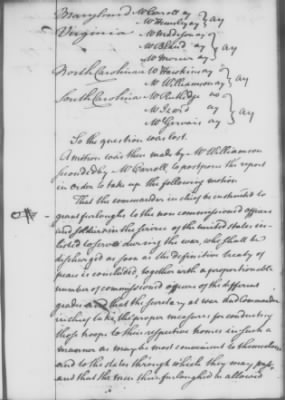 Maryland Mr Carroll ay
Mr Hemsley ay } ay
Virginia Mr Madison ay
Mr Bland ay } ay
Mr Mercer ay
North Carolina Mr Hawkins ay
Mr Williamson ay } ay
South Carolina Mr Rutledge no
Mr Izard ay } ay
Mr Gervais ay
So the question was lost.
A motion was then made by Mr Williamson
seconded by Mr Carroll, to postpone the report
in order to take up the following motion
That the commander in chief be instructed to
grant furloughs to the non commissioned officers
and soldiers in the service of the united states in-
listed to serve during the war, who shall be
discharged as soon as the definitive treaty of
peace is concluded, together with a proportionable
number of commissioned officers of the different
grades and that the secretary at war and Commander
in chief take the proper measures for conducting
those troops to their respective homes in such a
manner as may be most convenient to themselves
and to the states through which they may pass,
and that the men thus furloughed be allowed